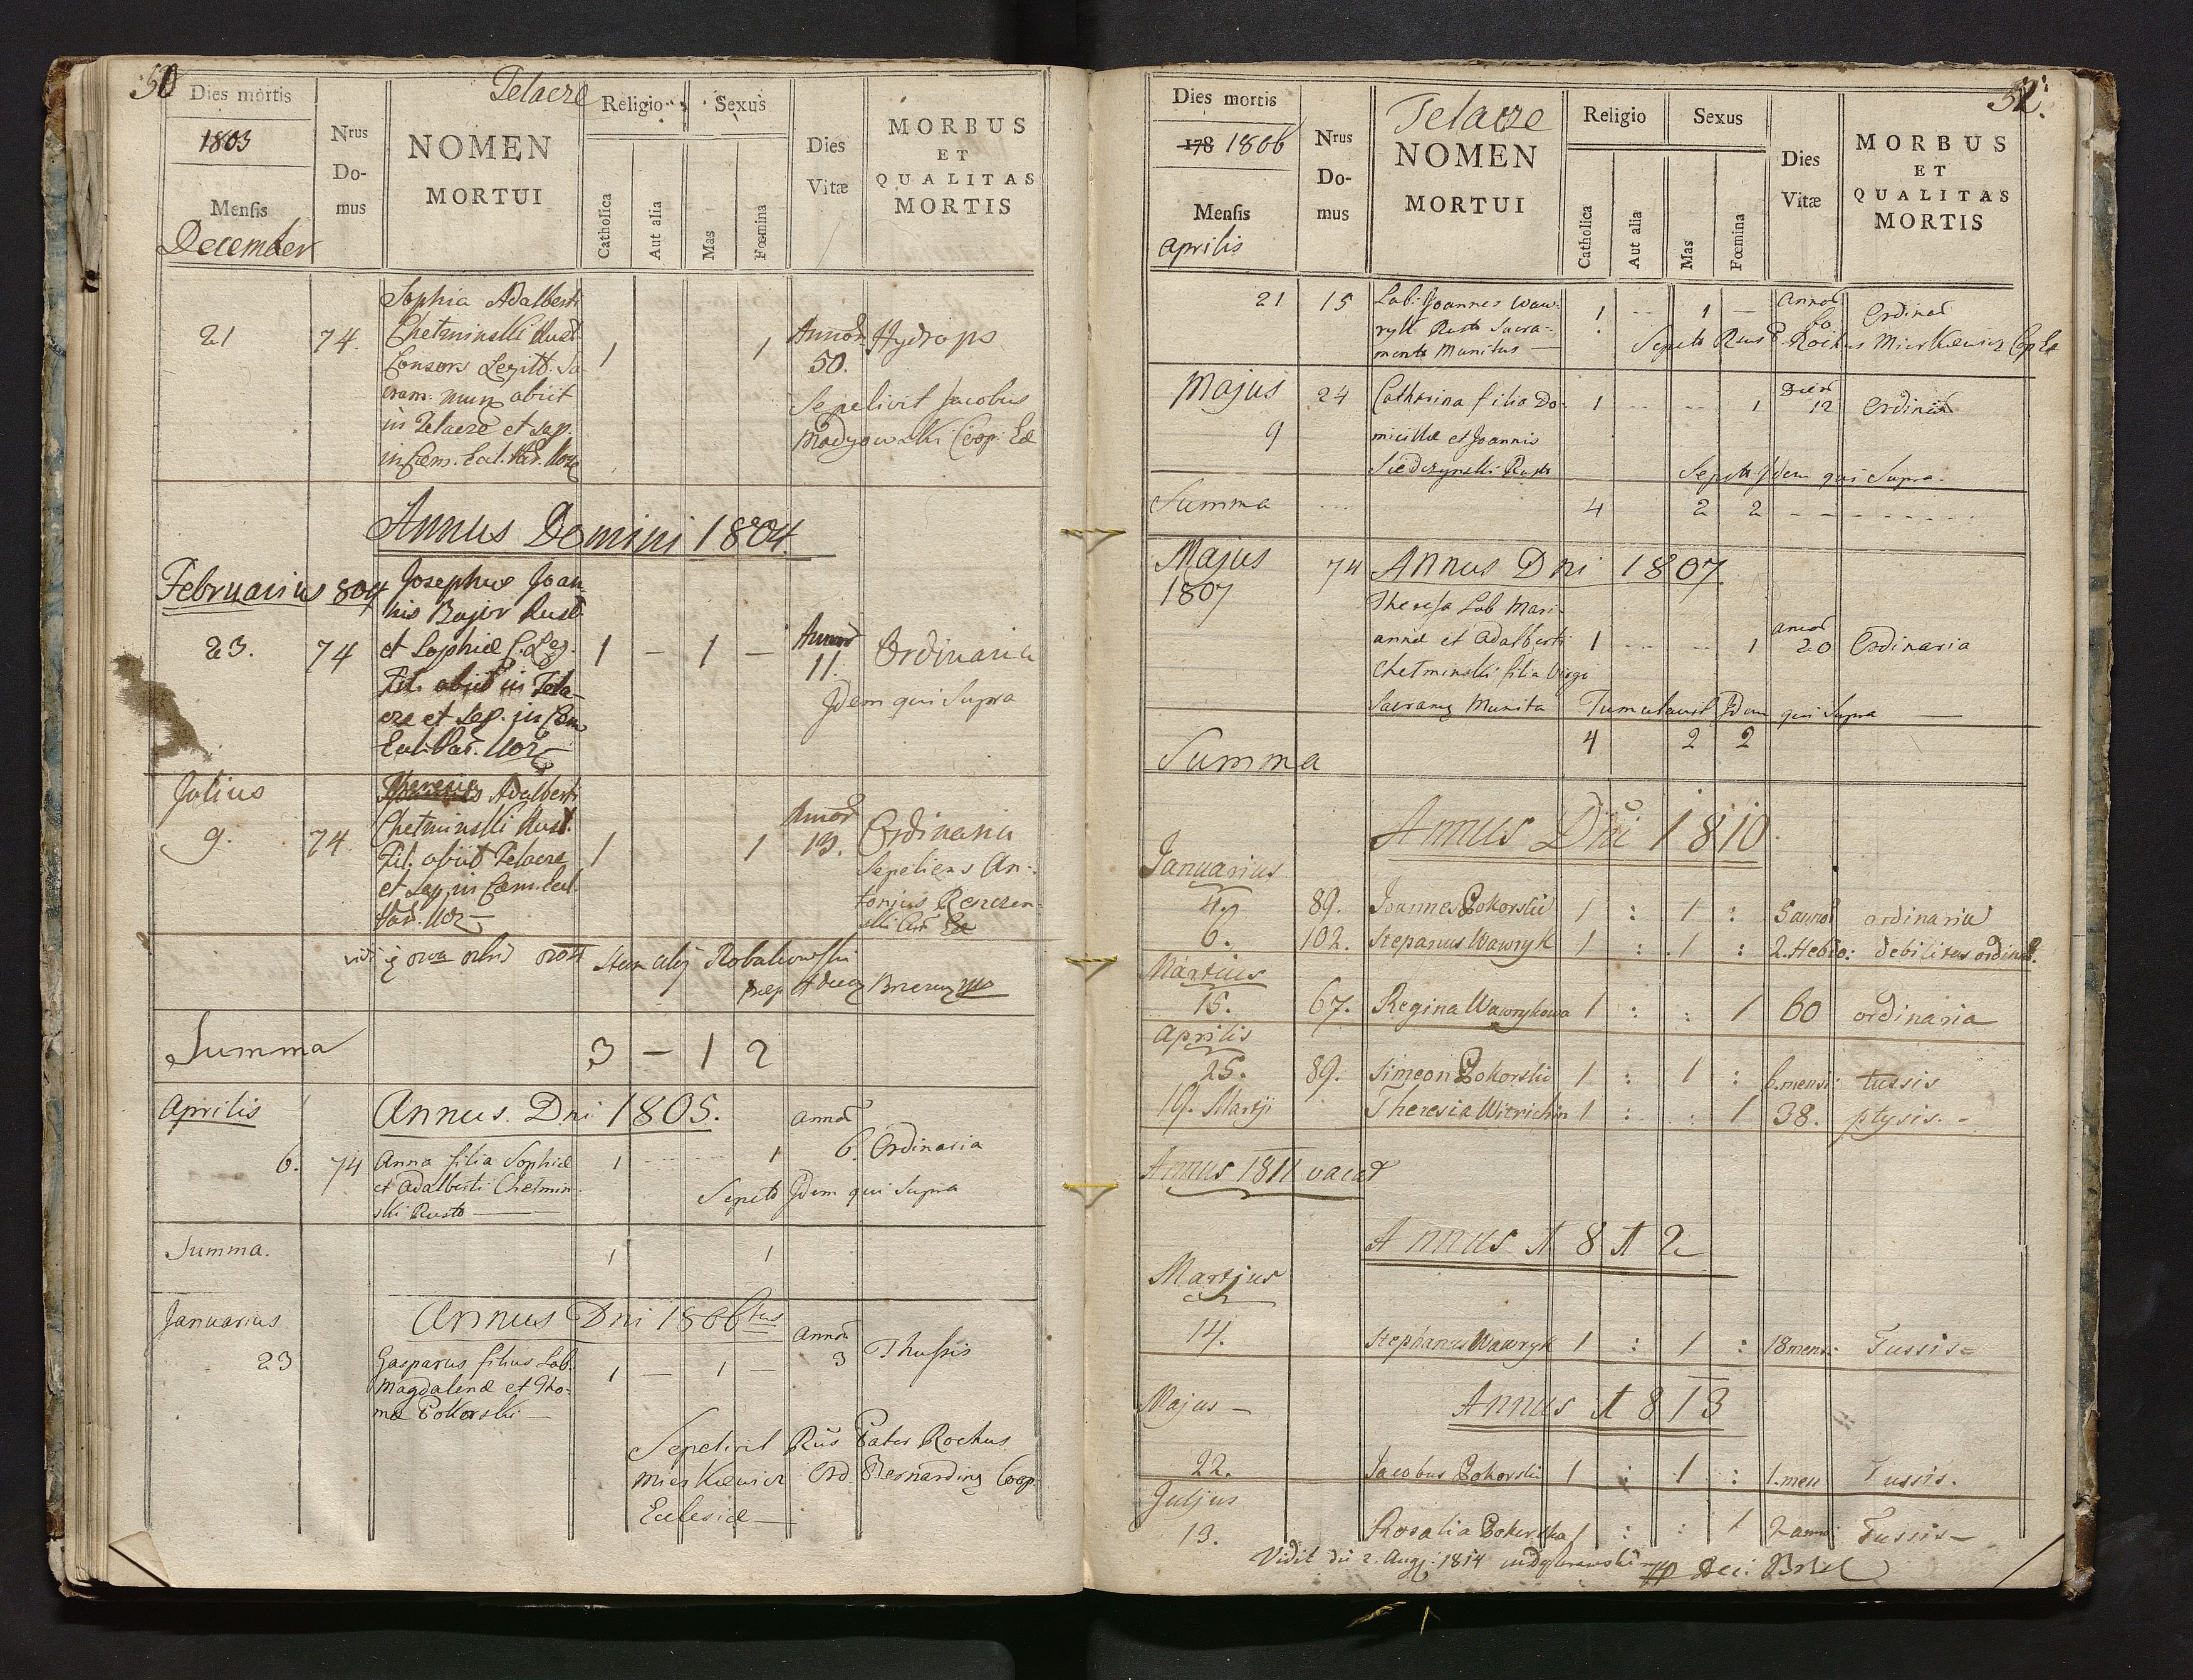 50
Telacze
Dies mortis
1803
Mensis
December
Nrus
Do-
mus
NOMEN
MORTUI
Religio
Catholica
Aut alia
Sexus
Mas
Fœmina
Dies
Vitæ
MORBUS
ET
QUALITAS
MORTIS
Sophia Adalberti
21 74. Chetminski Rust. 1 1 Annor. Hydrops
Consors Legitt. Sa 50.
cram: mun. abiit
in Telacze et sep. Sepelivit Jacobus
in Cæm. Eccl. Par. Coop: Ecc
Annus Domini 1804.
Februarius 804 Josephus Joan-
nis Bajor Rust.
23. 74 et Sophiæ C. Leg. 1 — 1 — Annor 11. Ordinaria
Fil. abiit in Tela-
cze et Sep. in Cæm Idem qui Supra
Eccl. Par.
Julius
Adalberti
9. 74. Chetminski Rust. 1 1 Annor 13. Ordinaria
Fil. abiit Telacze
et Sep. in Cæm. Eccl. Sepeliens An-
Par. tonius

Summa 3 — 1 2
Aprilis Annus. Dni 1805.
annor
6. 74 Anna filia Sophiæ 1 1 6. Ordinaria
et Adalberti Chetmin-
ski Rusto Idem qui Supra
Summa. 1 1
Januarius Annus Dni 1806tus
annor
23 Gasparus filius Lab. 1 — 1 — 3 Thussis
Magdalenæ et Tho-
mæ Pokorski —
Sepelivit Rus Pater Rochus
Mierkiewicz Ord. Bernardinq Coop
Ecclesiæ —
Telacze
Dies mortis
178 1806
Mensis
Aprilis
Nrus
Do-
mus
NOMEN
MORTUI
Religio
Catholica
Aut alia
Sexus
Mas
Fœmina
Dies
Vitæ
MORBUS
ET
QUALITAS
MORTIS
21 15 Lab: Joannes Waw- 1 -- 1 — annor Ordinar
ryk Rusto Sacra-
mento Munitus — Rochus Mierkiewicz Cop Ec
Majus 24 Catharina filia Do- 1 -- -- 1 Dier 12 Ordinar
9 micillæ et Joannis
Siedczynski Rusto
Idem qui Supra.
Summa 4 2 2
Majus 74 Annus Dni 1807
1807
Theresa Lab Mari-
annæ et Adalberti 1 -- -- 1 annor 20 Ordinaria
Chetminski filia Virgo
Sacramq Munita Tumulavit Idem qui Supra —
Summa 4 2 2
Annus Dni 1810.
Januarius
4. 89. Joannes Pokorski 1 : 1 : 5 annor ordinaria
6. 102. Stepanus Wawryk 1 : 1 : 2. Hebdo: debilitas ordinar.
Martius
15. 67. Regina Wawrykowa 1 : : 1 60 ordinaria
Aprilis
25. 89. Simeon Pokorski 1 : 1 : 6. mensi: tussis
19. Martji Theresia 1 : : 1 38. ptysis. -
Annus 1811 vacat
Annus 1812
Martjus
14. Stephanus Wawryk 1 : 1 : 18 mens: Tussis -
Majus — Annus 1813
22. Jacobus Pokorski 1 : 1 : 1. men Tussis.
Juljus
13. Rosalia Pokorska 1 : : 1 2 anno: Tussis —
Vidit die 2. Augj: 1814